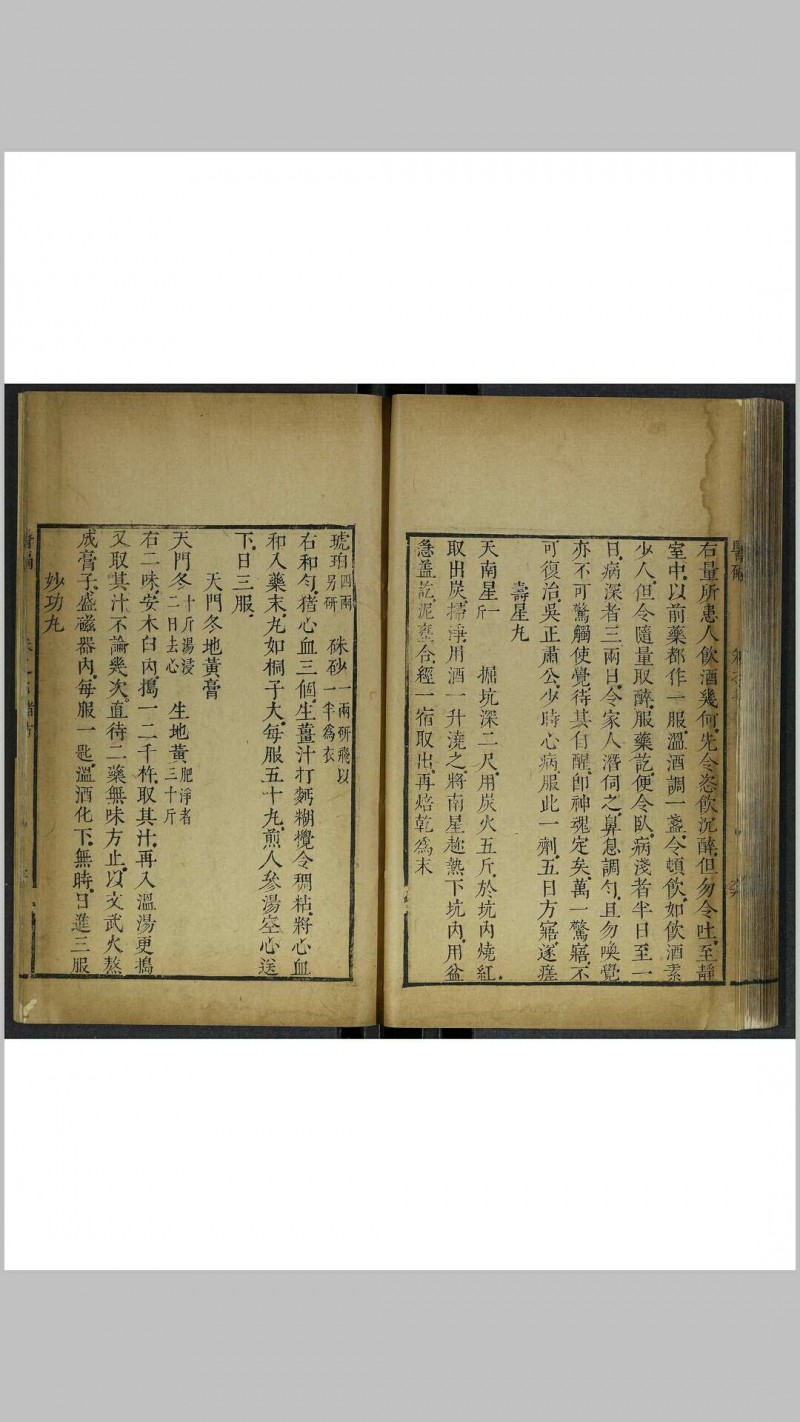 右量所患人飲酒幾何先令恣飲沉醉但勿令吐至靜
室中以前藥都作一服溫酒調一盞令頓飲如飲酒素
少人但令隨量取醉服藥訖便令臥病淺者半日至一
日病深者三兩日令家人潛伺之鼻息調勻且勿喚覺
亦不可驚觸使覺待其自醒卽神魂定矣萬一驚寤不
可復治吳正肅公少時心病服此一劑五日方寤遂瘥
壽星丸
天南星一斤 掘坑深二尺用炭火五斤於坑內燒紅
取出炭掃淨用酒一升澆之將南星趂熱下坑內用盆
急蓋訖泥壅合經一宿取出再焙乾爲末
琥珀四兩另研 硃砂一兩研飛以一半爲衣
右和勻猪心血三個生薑汁打麪糊攪令稠粘將心血
和入藥末丸如桐子大每服五十丸煎人參湯空心送
下日三服
天門冬地黃膏
天門冬十斤湯浸二日去心 生地黃肥淨者三十斤
右二味安木臼內搗一二千杵取其汁再入溫湯更搗
又取其汁不論幾次直待二藥無味方止以文武火熬
成膏子盛磁器內每服一匙溫酒化下無時日進三服
妙功丸